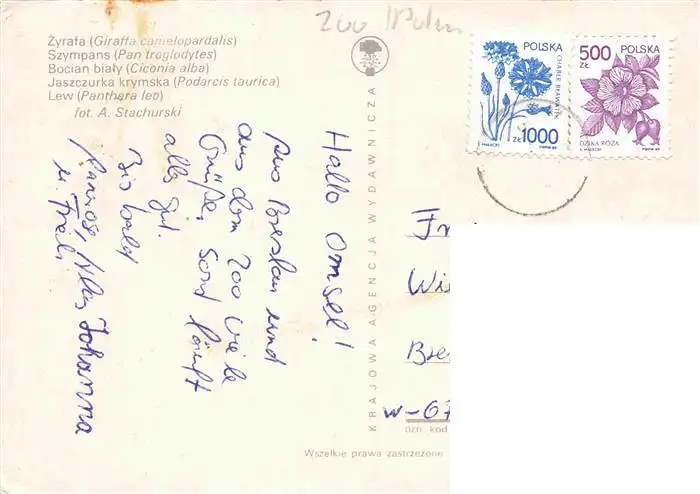 Zoo / Polen
Żyrafa (Giraffa camelopardalis)
Szympans (Pan troglodytes)
Bocian biały (Ciconia alba)
Jaszczurka krymska (Podarcis taurica)
Lew (Panthera leo)
fot. A. Stachurski
POLSKA
CHABER BŁAWATEK
ZŁ 1000
500 ZŁ
POLSKA
DZIKA RÓŻA
Hallo Omsel!
Aus Breslau und
aus dem Zoo viele
Grüße, sonst läuft
alles gut.
Bis bald
Johanna
u. Fredi
KRAJOWA AGENCJA WYDAWNICZA
Wi
w-67
ozn. kod
Wszelkie prawa zastrzeżone